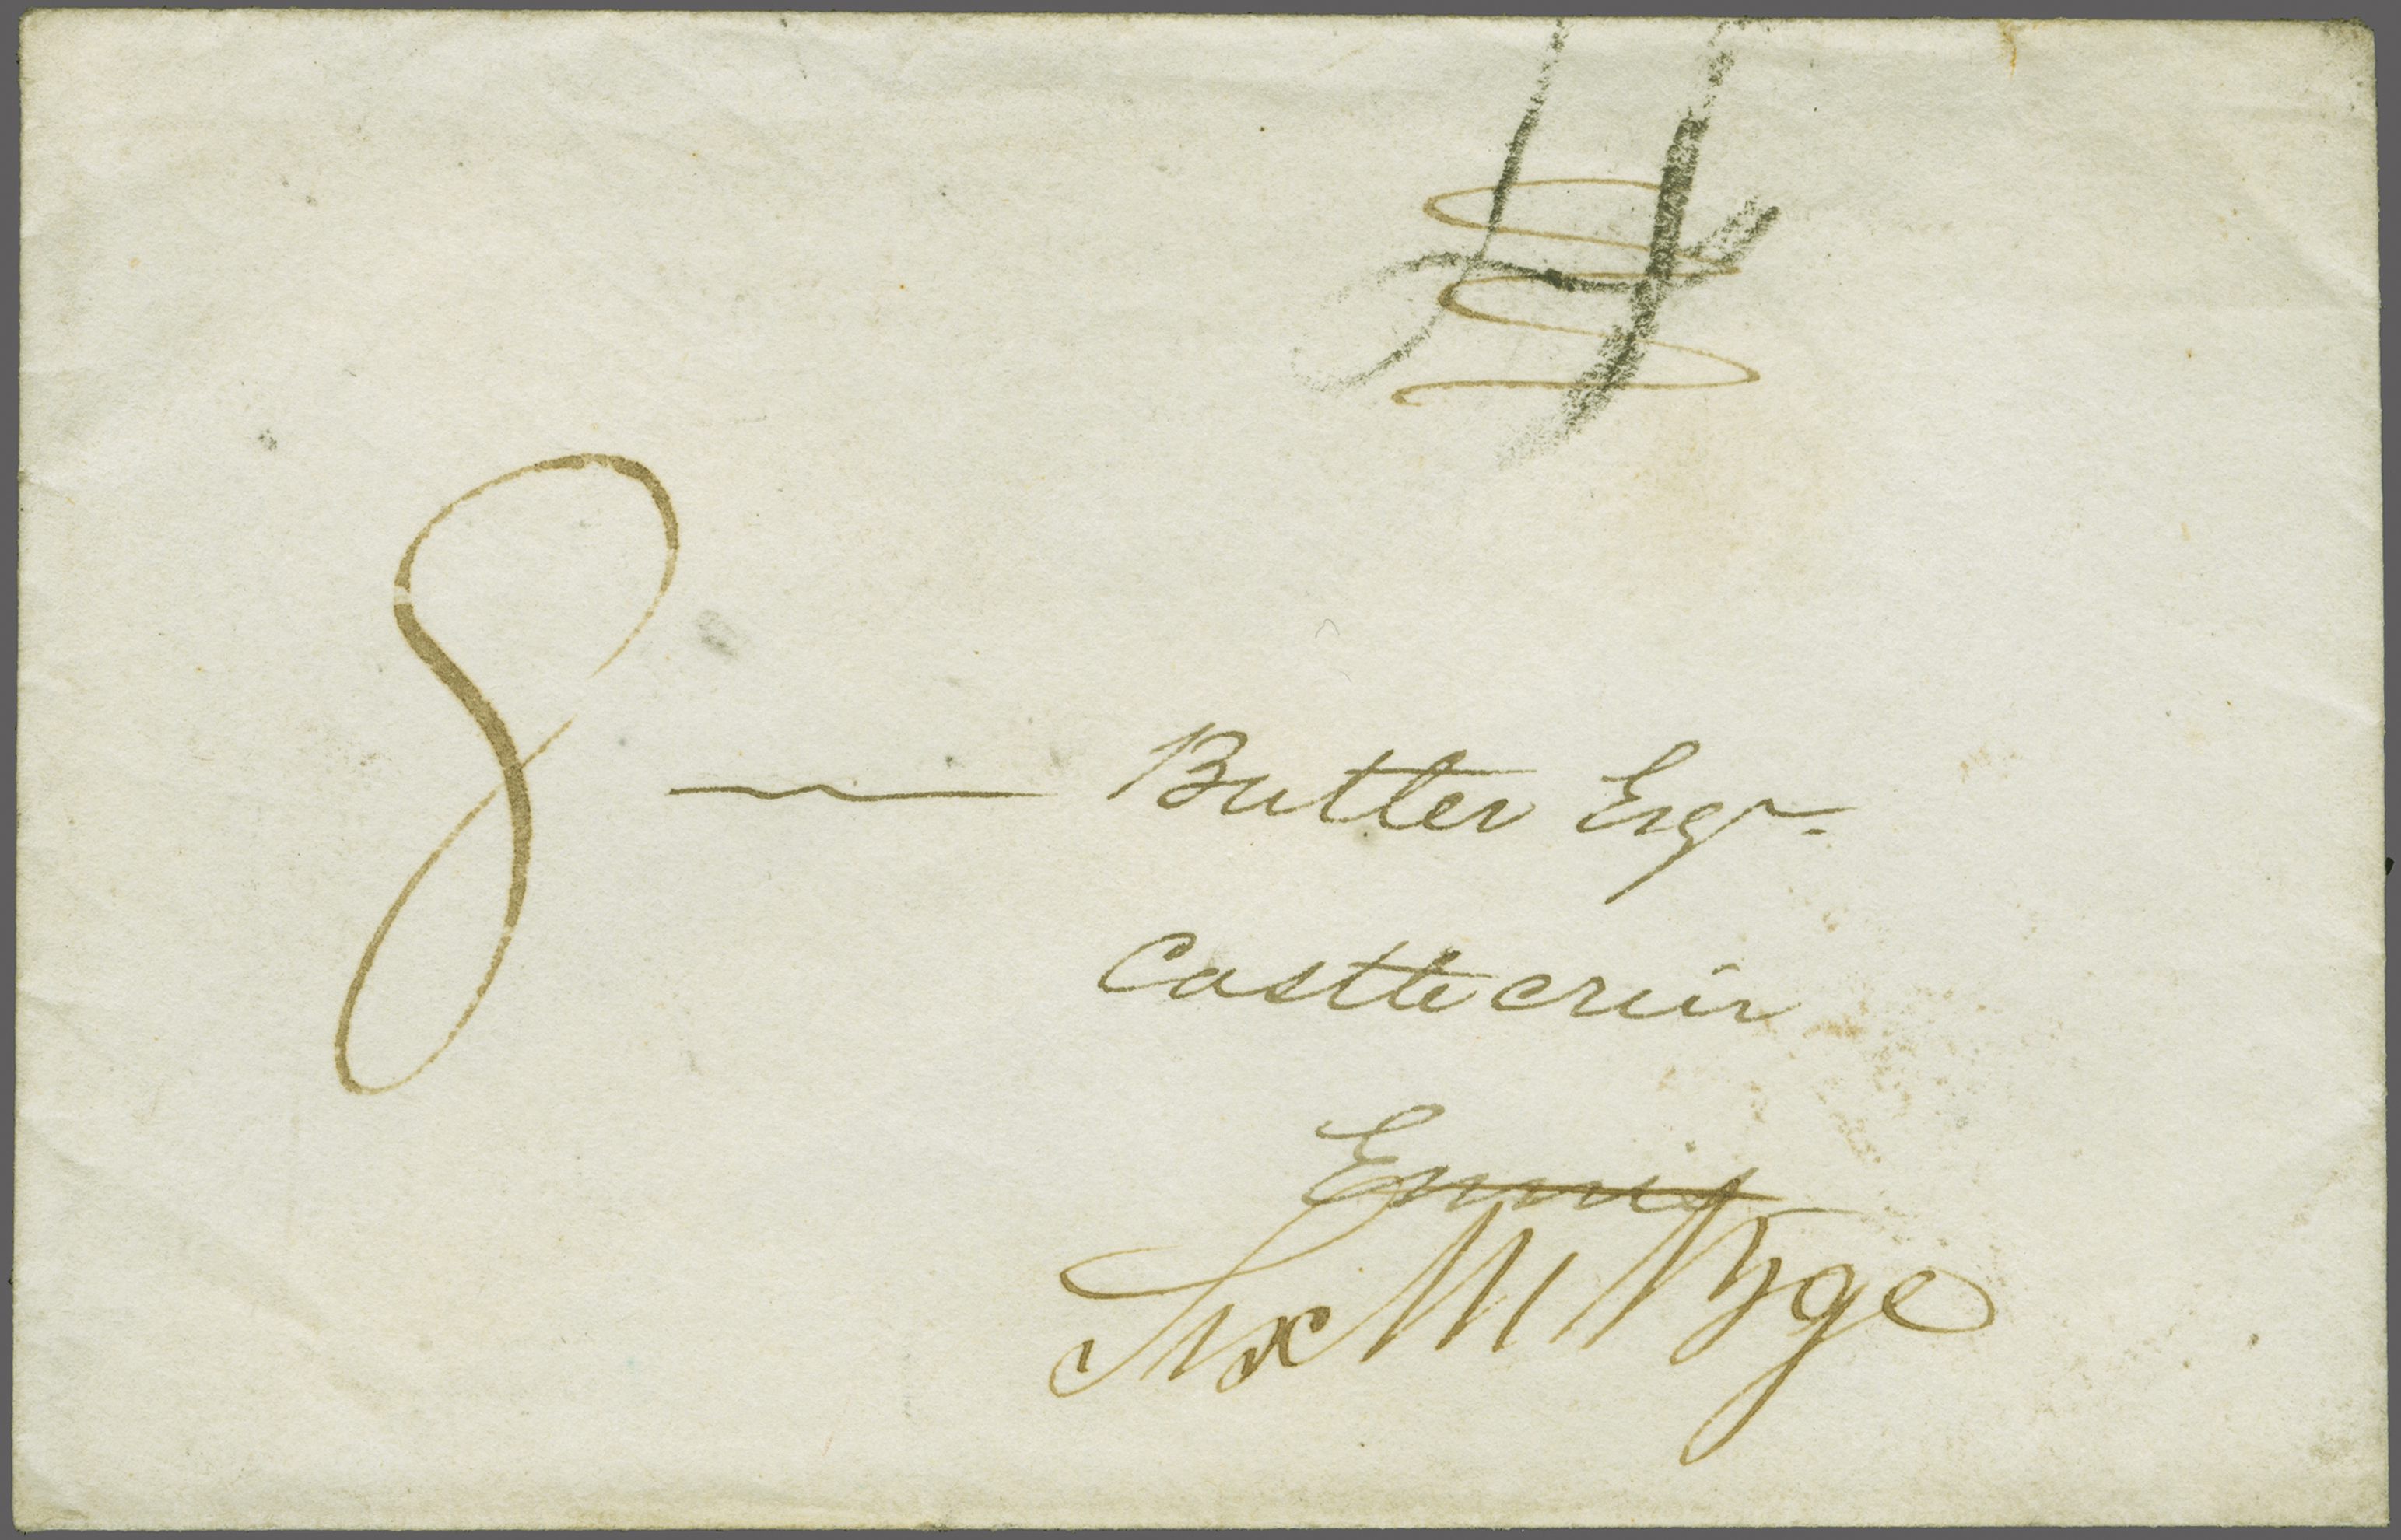 4
8
— Butler Esqr.
Castlecrin
Ennis
Six M Bge